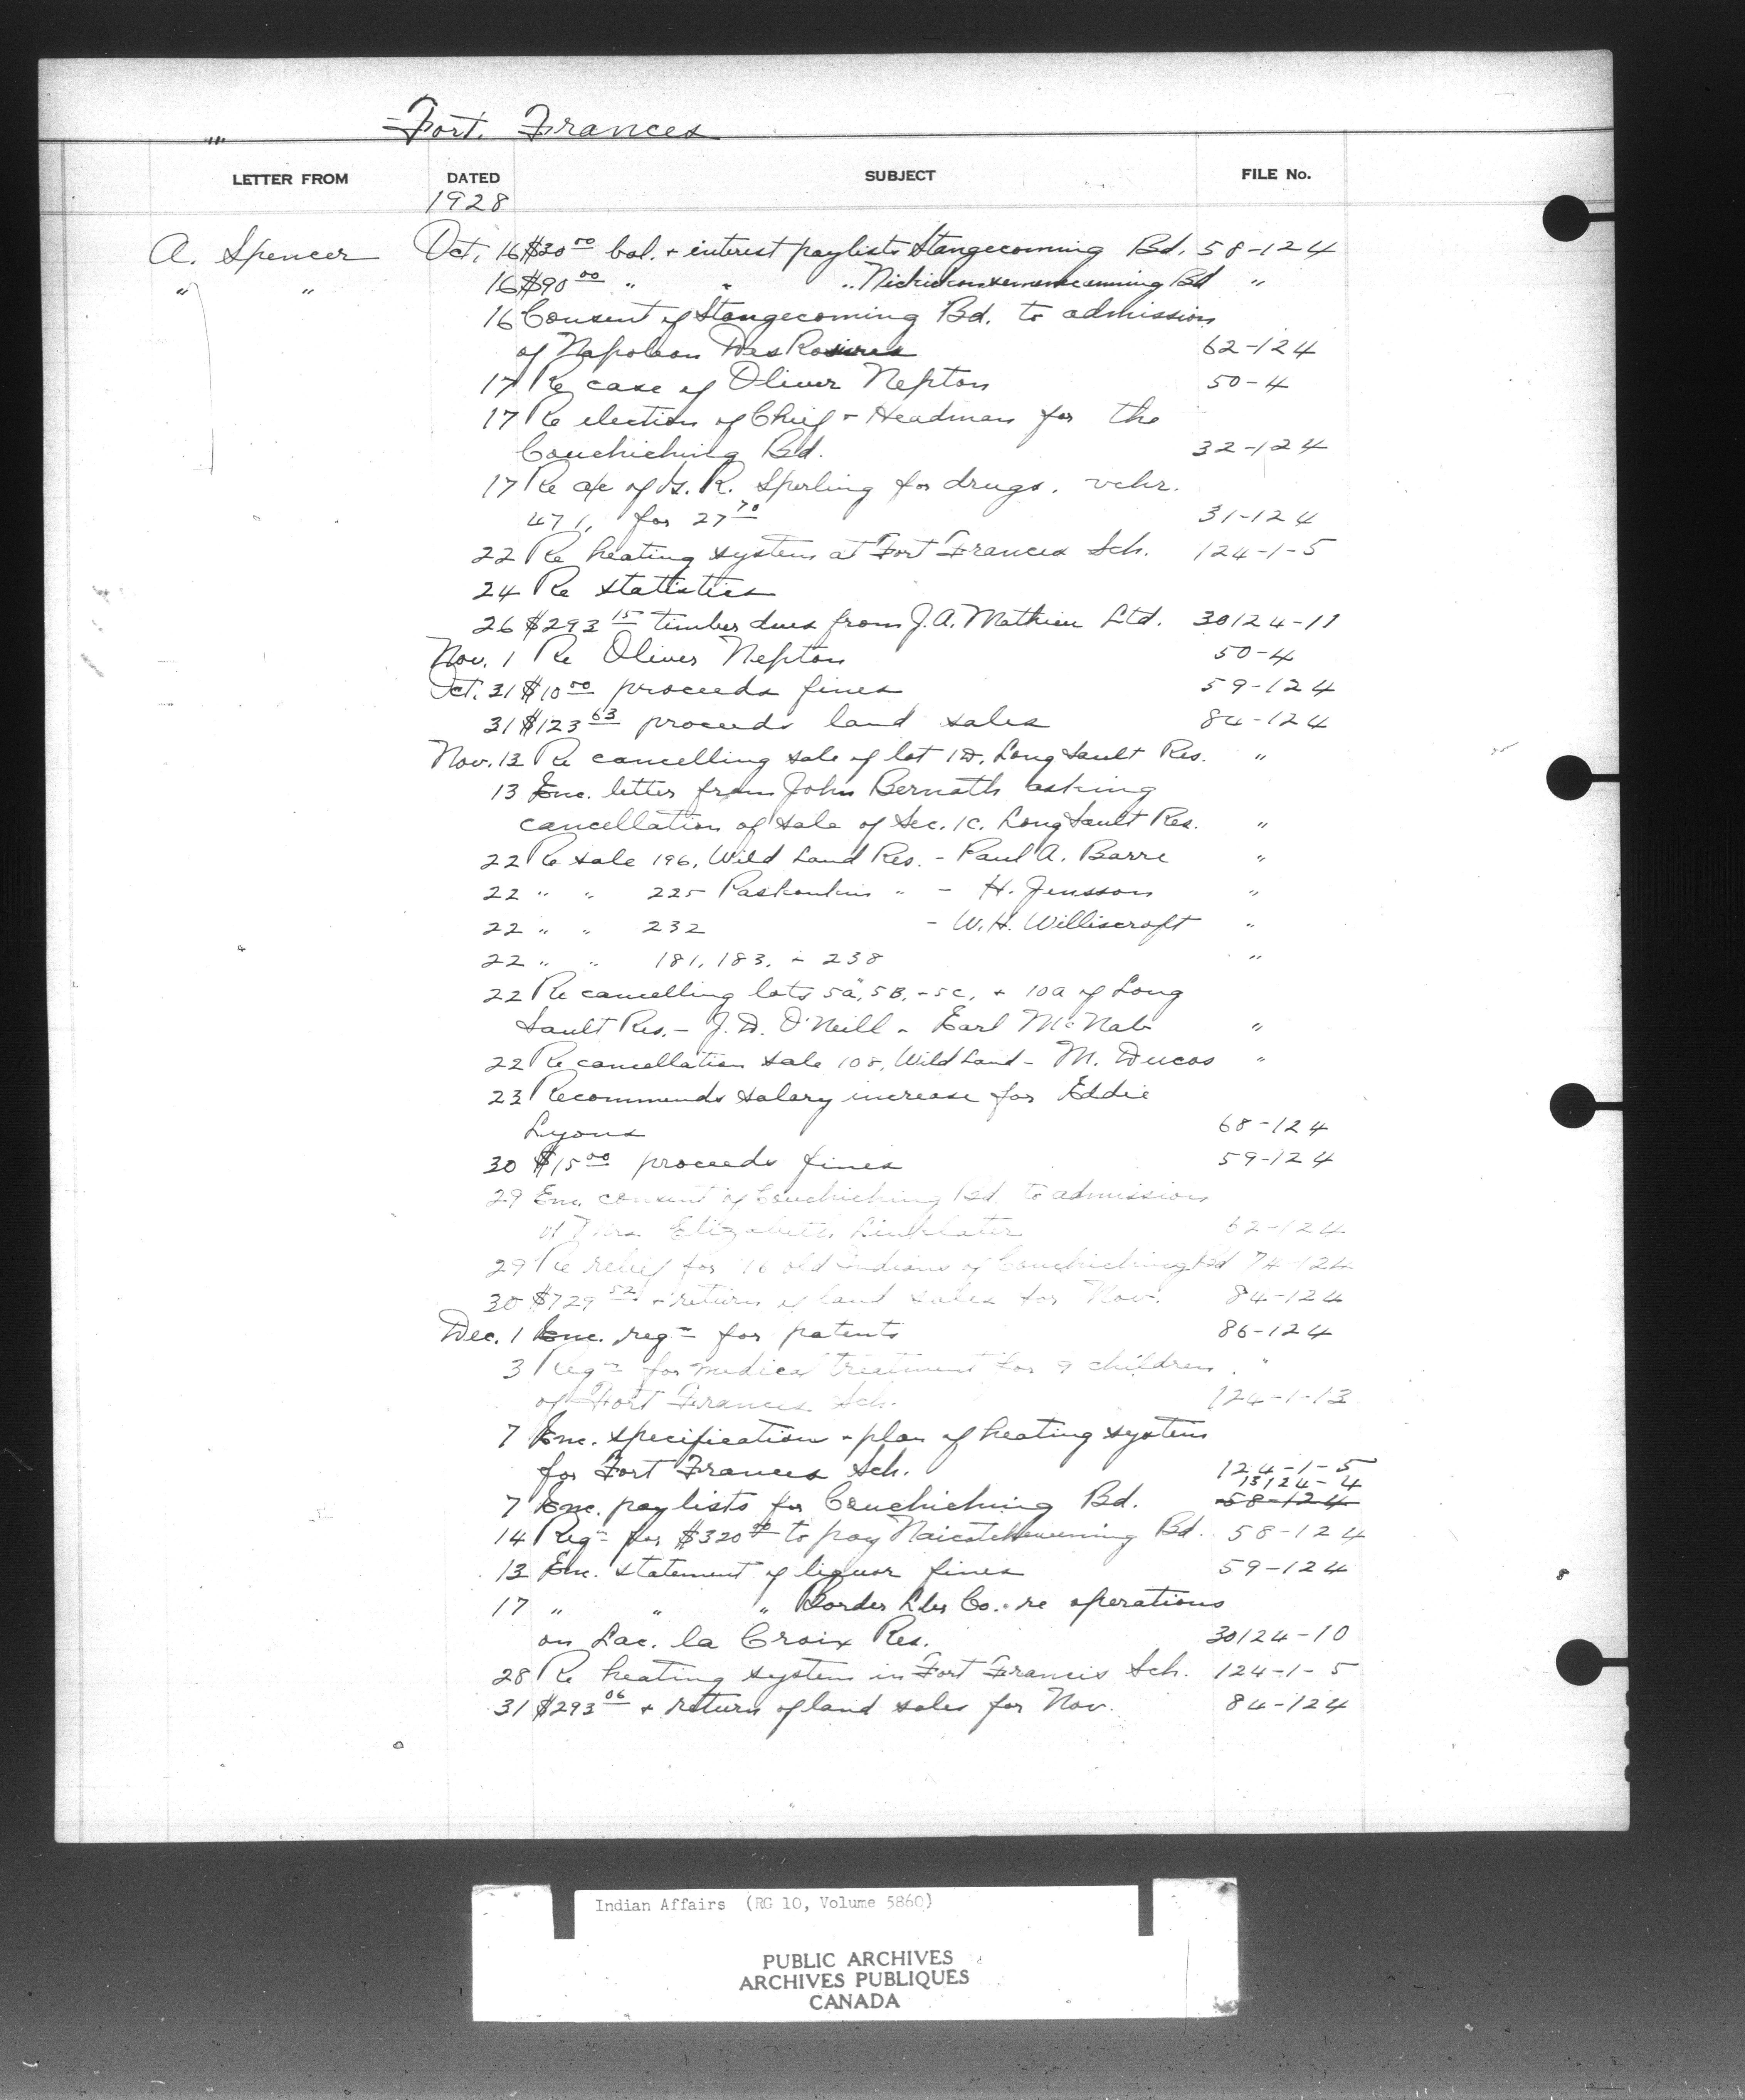 Fort. Frances
LETTER FROM DATED SUBJECT FILE No.
1928
A. Spencer Oct. 16 $30 00 bal. + interest paylists Stangecoming Bd. 58-124
" " 16 $90 00 " " " Bd "
16 Consent of Stangecoming Bd. to admission
of Napoleon 62-124
17 Re case of Oliver Nepton 50-4
17 Re election of Chief + Headman for the
Couchiching Bd. 32-124
17 Re a/c of G. R. Sperling for drugs. vchr.
471, for 27 70 31-124
22 Re heating system at Fort Frances Sch. 124-1-5
24 Re statistics
26 $293 15 timber dues from J. A. Mathieu Ltd. 30124-11
Nov. 1 Re Oliver Nepton 50-4
Oct. 31 $10 00 proceeds fines 59-124
31 $123 63 proceeds land sales 84-124
Nov. 13 Re cancelling sale of lot 1D, Long Sault Res. "
13 Enc. letter from John Bernath asking
cancellation of sale of Sec. 1C, Long Sault Res. "
22 Re sale 196, Wild Land Res. - Paul A. Barre "
22 " " 225 " - H. Jensson "
22 " " 232 - W. H. Williscroft "
22 " " 181, 183, + 238 "
22 Re cancelling lots 5a, 5B, - 5C, + 10a of Long
Sault Res. - J. D. O'Neill - Earl McNab "
22 Re cancellation sale 108, Wild Land - M. Ducas "
23 Recommends salary increase for Eddie
Lyons 68-124
30 $15 00 proceeds fines 59-124
29 Enc. consent of Couchiching Bd. to admission
of Mrs. Elizabeth Linklater 62-124
29 Re relief for 16 old Indians of Couchiching Bd 74-124
30 $729 52 + return of land sales for Nov. 84-124
Dec. 1 Enc. reqn for patents 86-124
3 Reqn for medical treatment for 9 children "
of Fort Frances Sch. 124-1-13
7 Enc. specification + plan of heating system
for Fort Frances Sch. 124-1-5
13124-4
7 Enc. paylists for Couchiching Bd. 58-124
14 Reqn for $320 00 to pay Naicatchewenning Bd. 58-124
13 Enc. statement of liquor fines 59-124
17 " " " Border Lbr Co. re operations
on Lac. la Croix Res. 30124-10
28 Re heating system in Fort Francis Sch. 124-1-5
31 $293 06 + return of land sales for Nov. 84-124
Indian Affairs (RG 10, Volume 5860)
PUBLIC ARCHIVES
ARCHIVES PUBLIQUES
CANADA